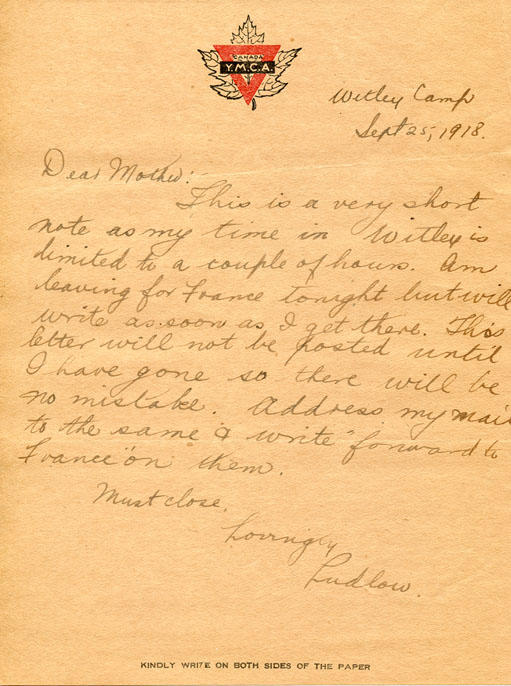 CANADA
Y.M.C.A.
Witley Camp
Sept 25, 1918.
Dear Mother:-
This is a very short
note as my time in Witley is
limited to a couple of hours. Am
leaving for France tonight but will
write as soon as I get there. This
letter will not be posted until
I have gone so there will be
no mistake. Address my mail
to the same & write "forward to
France" on them.
Must close.
Lovingly
Ludlow.
KINDLY WRITE ON BOTH SIDES OF THE PAPER